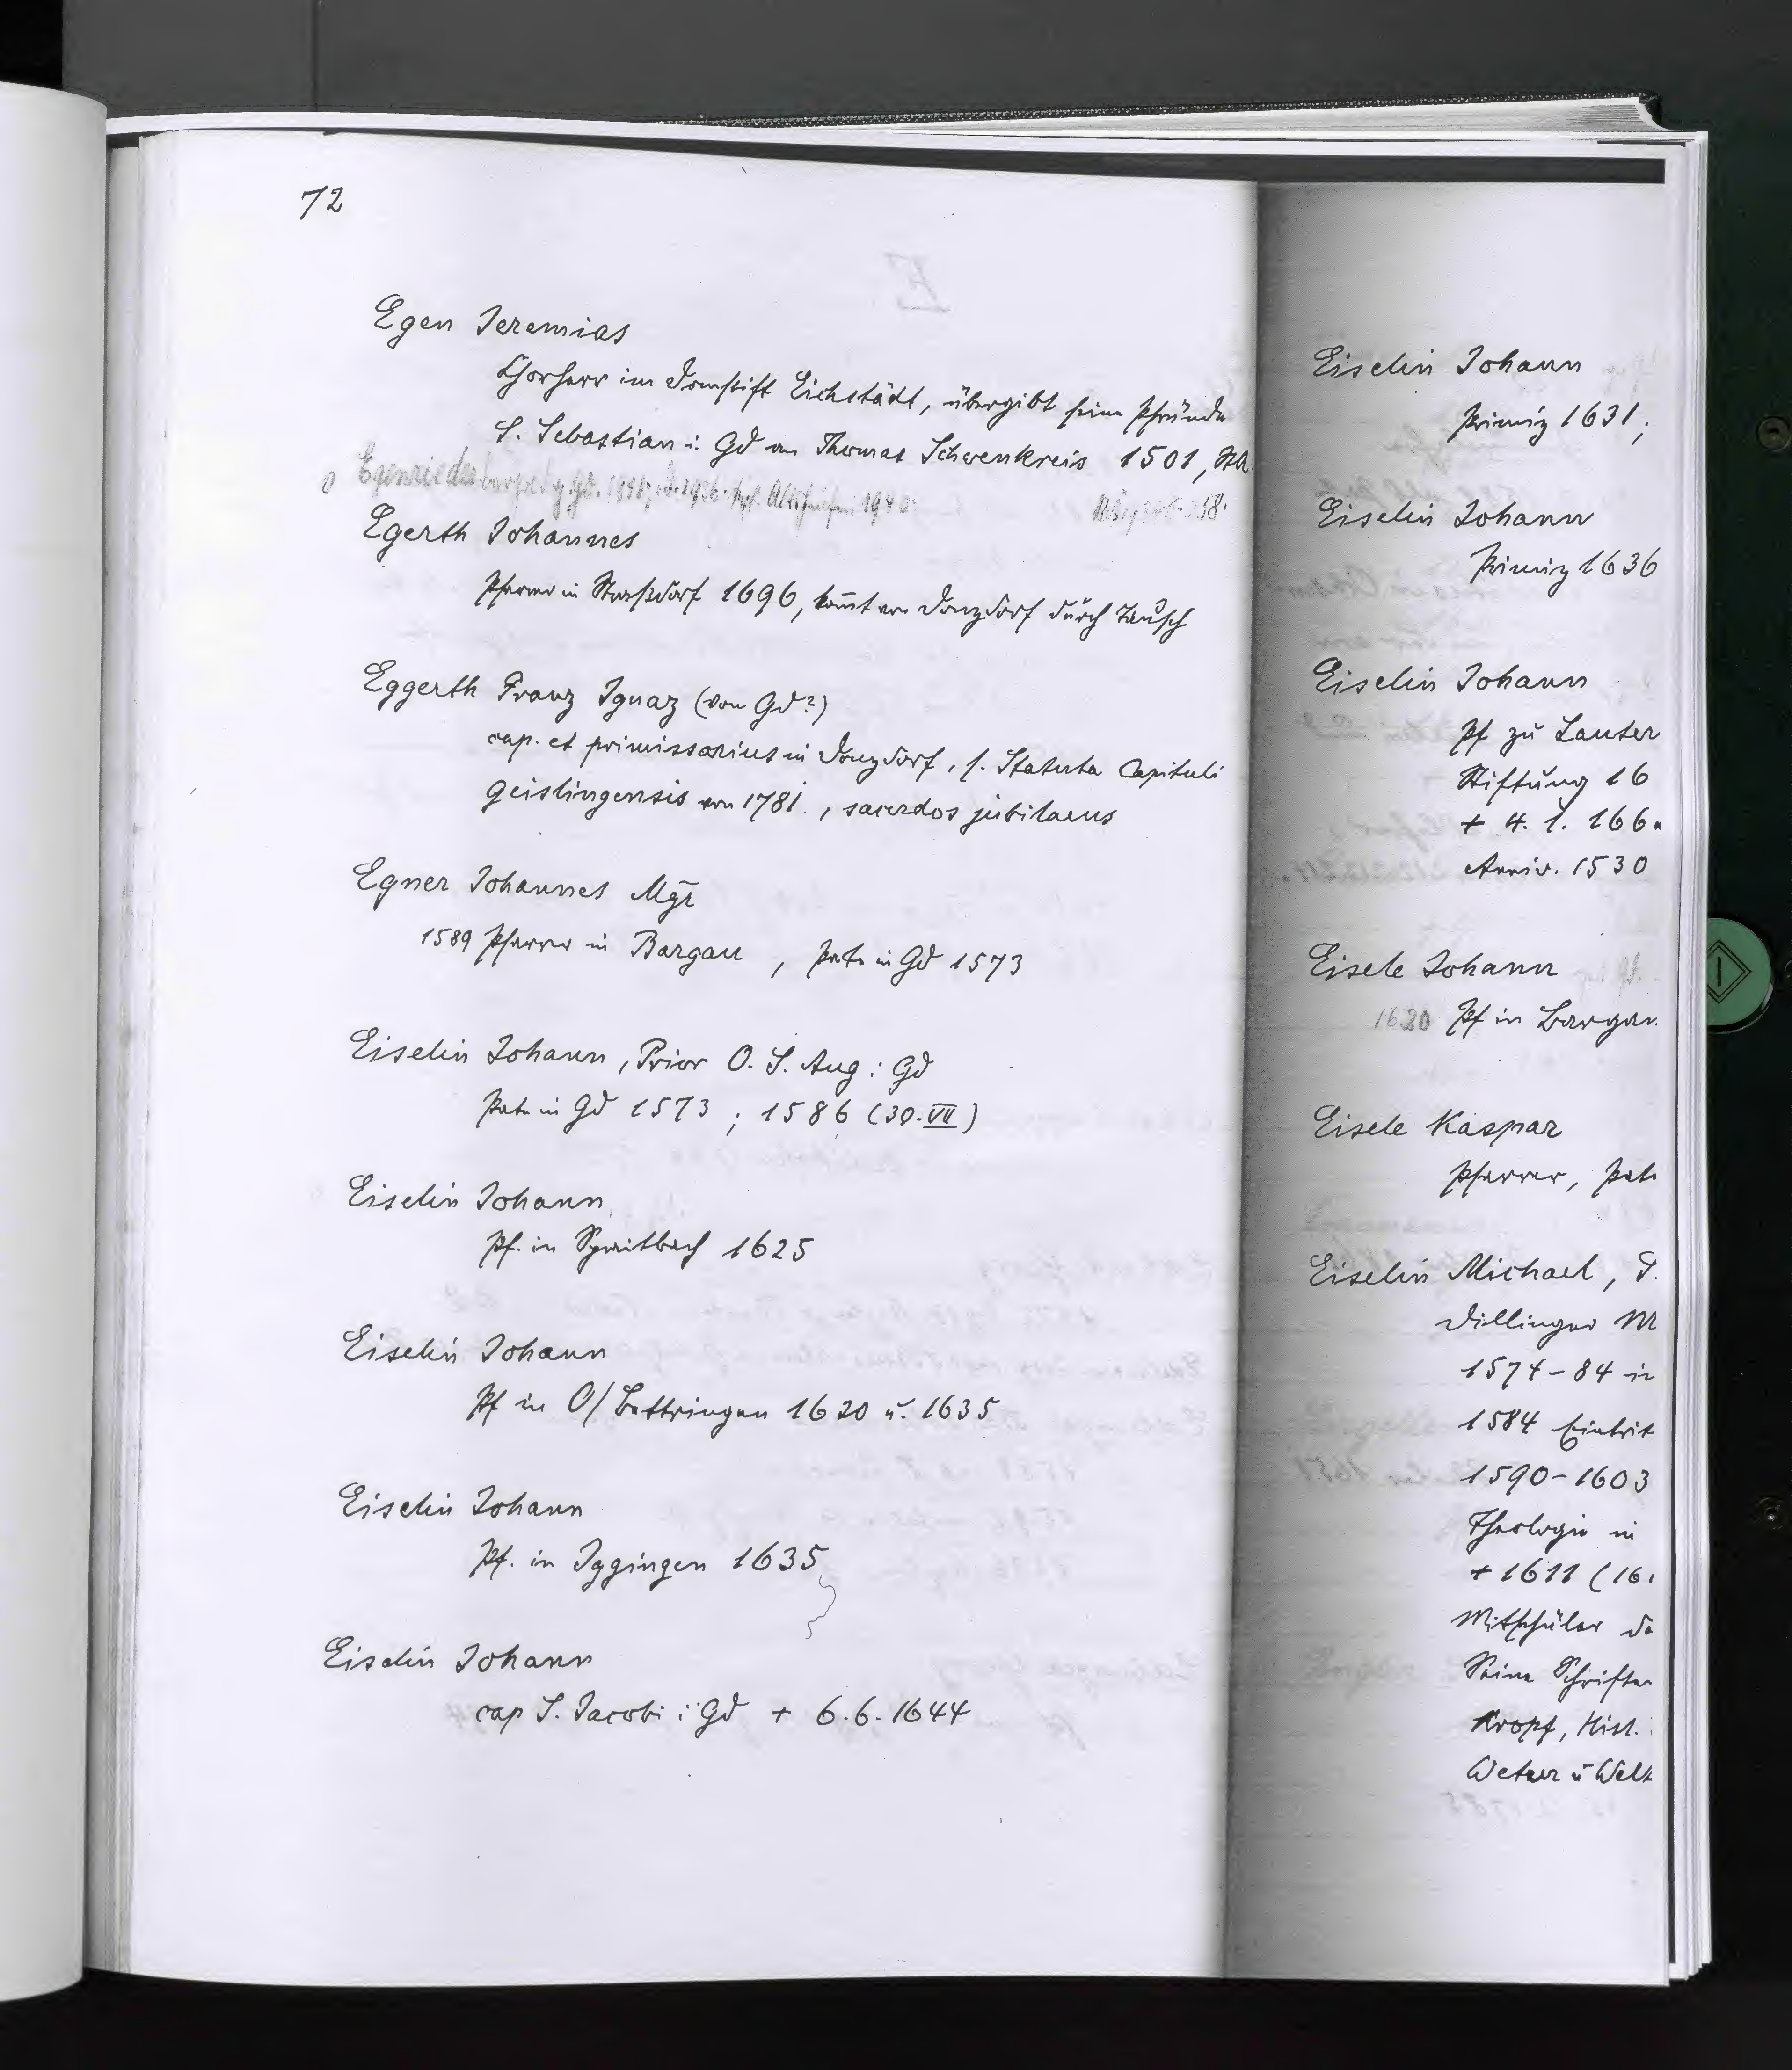 72
Egen Jeremias
Chorherr im Domstift Eichstädt, übergibt seine Pfründe
S. Sebastian i. Gd an Thomas Schwenkreis 1501, StA
Egerth Johannes
Pfarrer in Straßdorf 1696, kom̄t von Donzdorf durch Tausch
Eggerth Franz Ignaz (von Gd?)
cap. et primissarius in Donzdorf, s. Statuta Capituli
Geislingensis von 1781, sacerdos jubilaeus
Egner Johannes Mgr
1589 Pfarrer in Bargau, Pate in Gd 1573
Eiselin Johann, Prior O. S. Aug i Gd
Pate in Gd 1573; 1586 (30. VII)
Eiselin Johann
Pf. in Spraitbach 1625
Eiselin Johann
Pf in O/Bettringen 1620 u. 1635
Eiselin Johann
Pf. in Iggingen 1635
Eiselin Johann
cap S. Jacobi i Gd + 6.6.1644
Eiselin Johann
Primiz 1631;
Eiselin Johann
Primiz 1636
Eiselin Johann
Pf zu Lauter
Stiftung 16
+ 4. 1. 166
Anniv. 1530
Eisele Johann
1620 Pf in Bargau
Eisele Kaspar
Pfarrer, Pate
Eiselin Michael,
Dillinger M
1574-84 in
1584 Eintrit
1590-1603
Theologie in
+ 1611 (16
Mitschüler de
Seine Schrifte
Kropf, Hist.
Wetzer u Welt